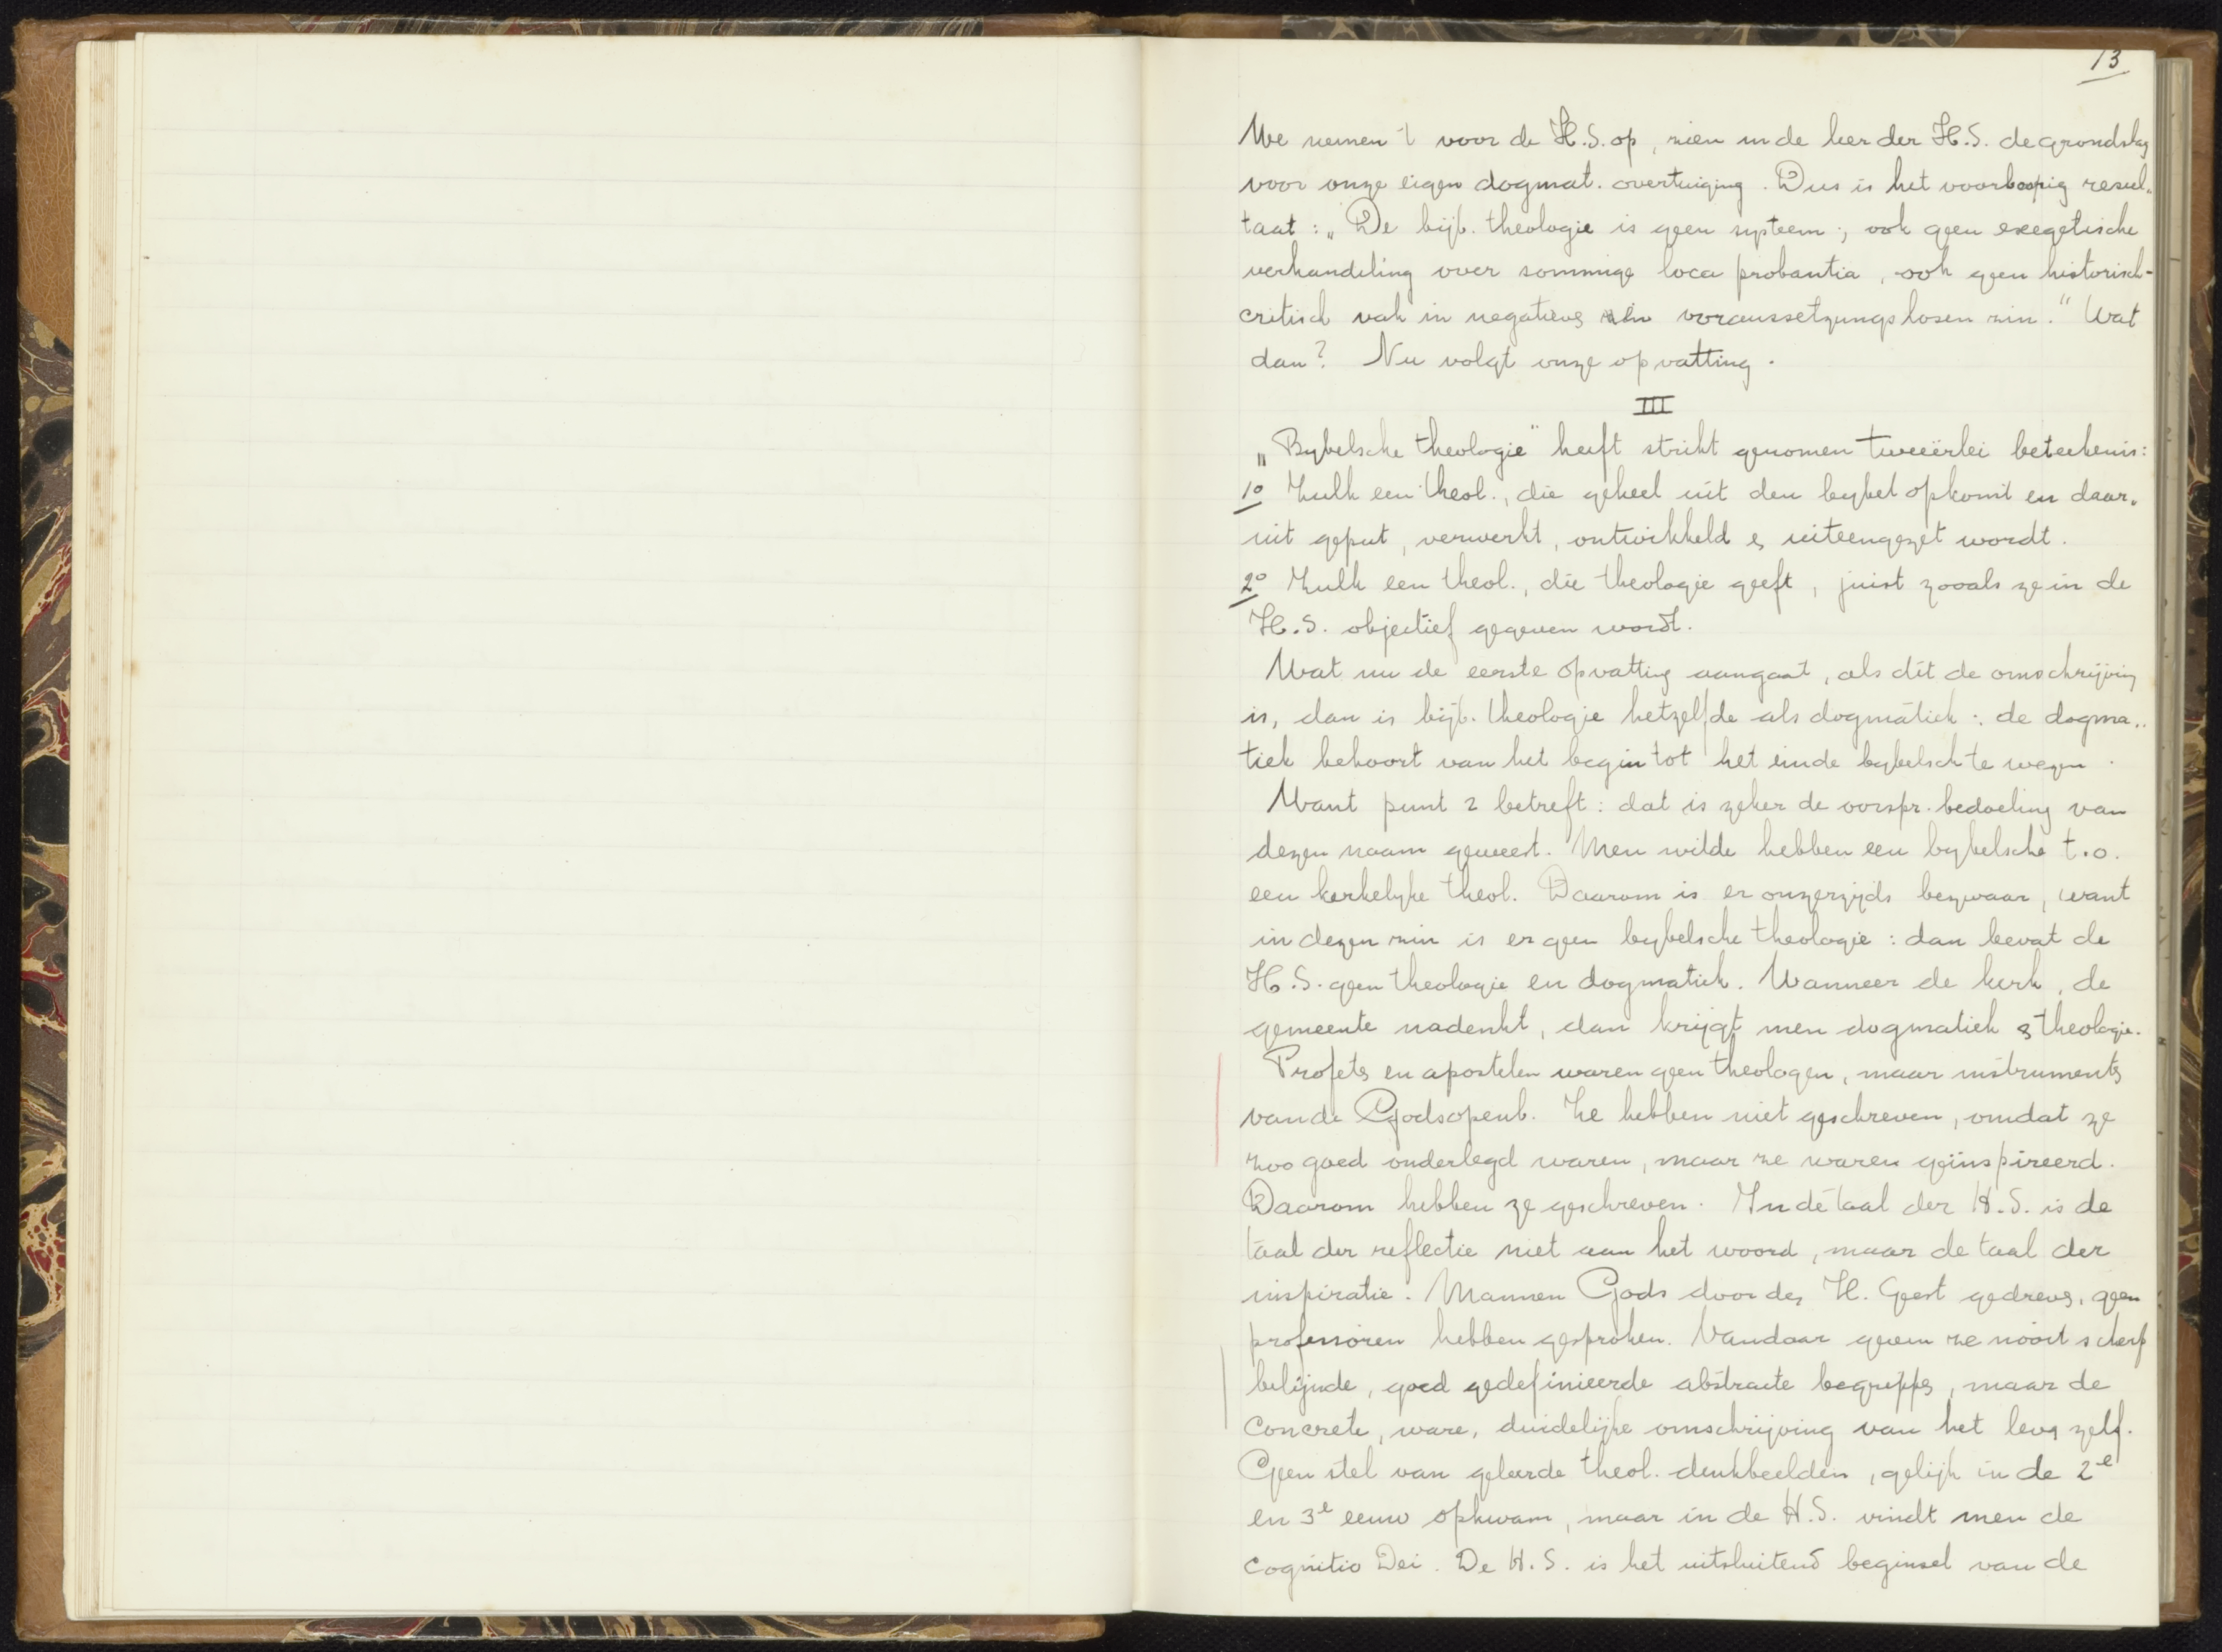 13
We nemen 't voor de H.S. op, zien in de leer der H.S. de grondslag
voor onze eigen dogmat. overtuiging. Dus is het voorloopig resul-
taat: „De bijb. theologie is geen systeem; ook geen exegetische
verhandeling over sommige loca probantia, ook geen historisch-
critisch vak in negatieve, in voraussetzungslosen zin." Wat
dan? Nu volgt onze opvatting.
III
„Bybelsche theologie" heeft strikt genomen tweeërlei beteekenis:
1º Zulk een theol., die geheel uit den bybel opkomt en daar-
uit geput, verwerkt, ontwikkeld & uiteengezet wordt.
2º Zulk een theol., die theologie geeft, juist zooals ze in de
H.S. objectief gegeven wordt.
Wat nu de eerste opvatting aangaat, als dit de omschrijving
is, dan is bijb. theologie hetzelfde als dogmatiek: de dogma-
tiek behoort van het begin tot het einde bybelsch te wezen.
Want punt 2 betreft: dat is zeker de oorspr. bedoeling van
dezen naam geweest. Men wilde hebben een bybelsche t.o.
een kerkelyke theol. Daarom is er onzerzijds bezwaar, want
in dezen zin is er geen bybelsche theologie: dan bevat de
H.S. geen theologie en dogmatiek. Wanneer de kerk, de
gemeente nadenkt, dan krijgt men dogmatiek & theologie.
Profeten en apostelen waren geen theologen, maar instrumenten
van de Godsopenb. Ze hebben niet geschreven, omdat ze
zoo goed onderlegd waren, maar ze waren geïnspireerd.
Daarom hebben ze geschreven. In de taal der H.S. is de
taal der reflectie niet aan het woord, maar de taal der
inspiratie. Mannen Gods door den H. Geest gedreven, geen
professoren hebben gesproken. Vandaar geven ze nooit scherp
belijnde, goed gedefinieerde abstracte begrippen, maar de
concrete, ware, duidelijke omschrijving van het leven zelf.
Geen stel van geleerde theol. denkbeelden, gelijk in de 2e
en 3e eeuw opkwam, maar in de H.S. vindt men de
cognitio Dei. De H.S. is het uitsluitend beginsel van de